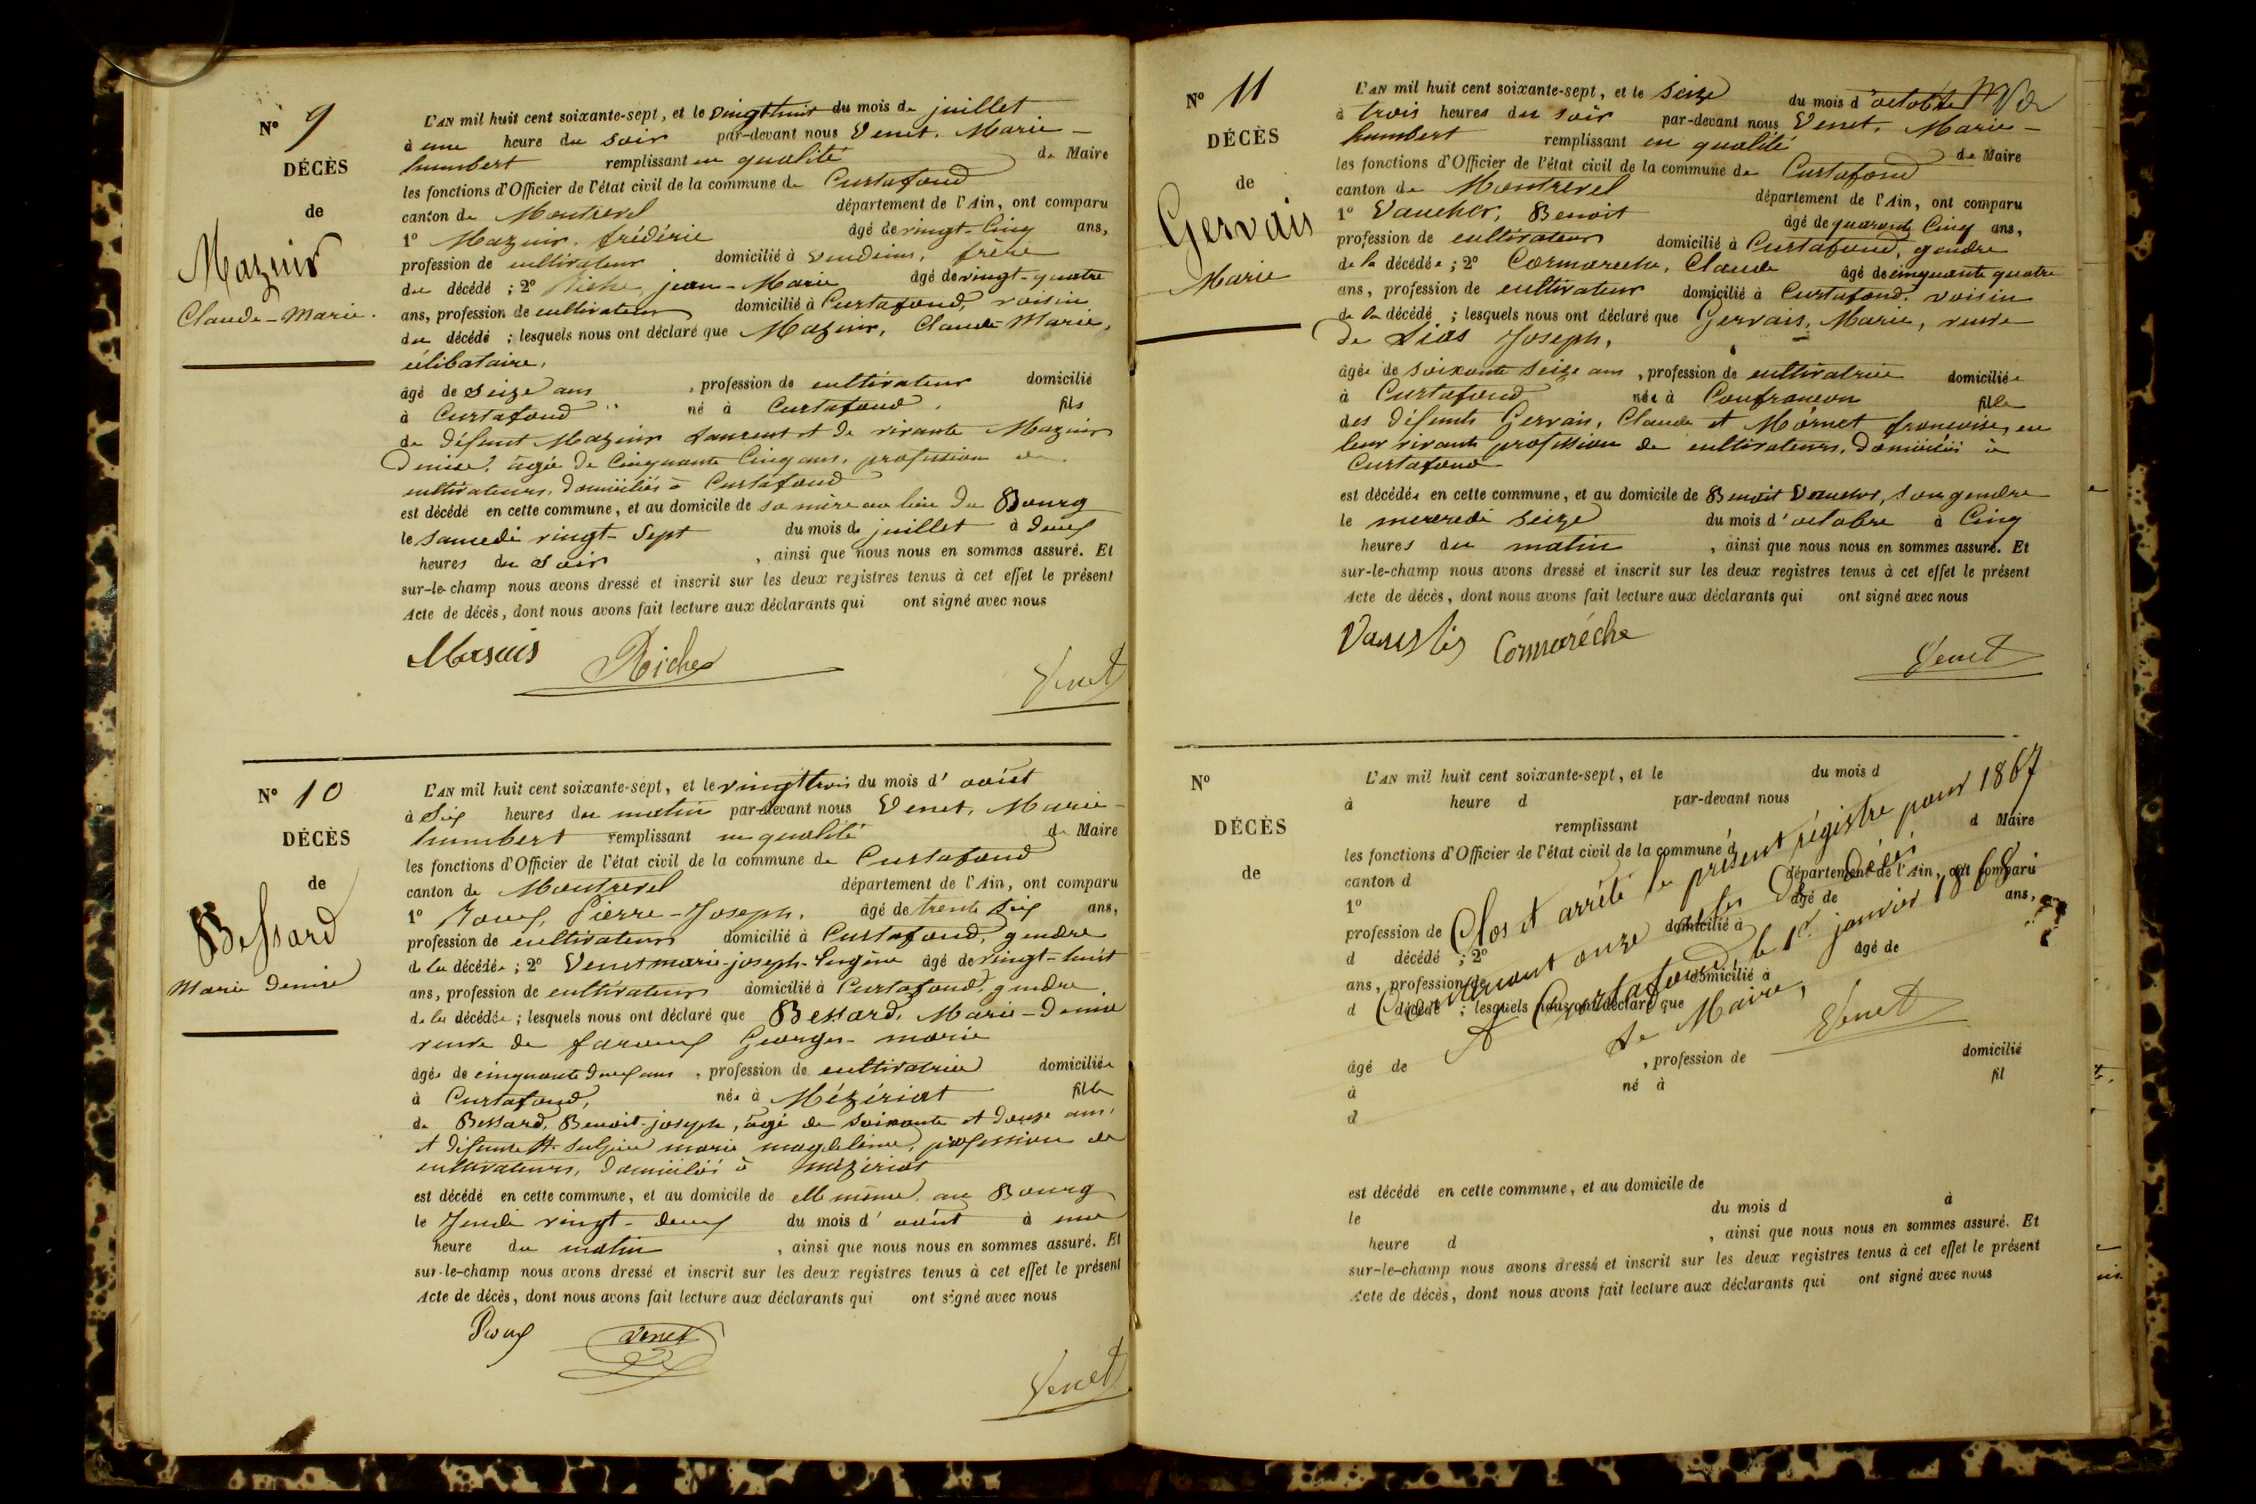 N° 9
DÉCÈS
de
Mazuir
Claude-Marie.
L'AN mil huit cent soixante-sept, et le vingt huit du mois de juillet
à une heure du soir par-devant nous Venet, Marie-
humbert remplissant en qualité de Maire
les fonctions d'Officier de l'état civil de la commune de Curtafond
canton de Montrevel département de l'Ain, ont comparu
1° Mazuir, frédéric âgé de vingt-cinq ans,
profession de cultivateur domicilié à vendeins, frère
du décédé ; 2° Riche jean-Marie âgé de vingt-quatre
ans, profession de cultivateur domicilié à Curtafond, voisin
du décédé ; lesquels nous ont déclaré que Mazuir, Claude-Marie,
célibataire,
âgé de seize ans, profession de cultivateur domicilié
à Curtafond né à Curtafond, fils
de défunt Mazuir Laurent et de vivante Mazuir
Denise, âgée de Cinquante Cinq ans, profession de
cultivateurs, domiciliés à Curtafond
est décédé en cette commune, et au domicile de sa mère au lieu du Bourg
le samedi vingt-sept du mois de juillet à deux
heures du soir, ainsi que nous nous en sommes assuré. Et
sur-le-champ nous avons dressé et inscrit sur les deux registres tenus à cet effet le présent
Acte de décès, dont nous avons fait lecture aux déclarants qui ont signé avec nous
Masuis Riche Venet
N° 10
DÉCÈS
de
Bessard
Marie Denise
L'AN mil huit cent soixante-sept, et le vingt trois du mois d'août
à Six heures du matin par-devant nous Venet, Marie-
humbert remplissant en qualité de Maire
les fonctions d'Officier de l'état civil de la commune de Curtafond
canton de Montrevel département de l'Ain, ont comparu
1° Roux, Pierre-Joseph, âgé de trente six ans,
profession de cultivateur domicilié à Curtafond, gendre
de la décédée ; 2° Venet marie-joseph-Eugène âgé de vingt-huit
ans, profession de cultivateur domicilié à Curtafond, gendre
de la décédée ; lesquels nous ont déclaré que Bessard, Marie-Denise
veuve de Georges-marie
âgée de cinquante deux ans, profession de cultivatrice domiciliée
à Curtafond, née à Mézériat fille
de Bessard, Benoit-joseph, âgé de soixante et douze ans,
et défunte marie magdeleine, profession de
cultivateurs, domiciliés à mézériat
est décédé en cette commune, et au domicile de elle même au Bourg
le Jeudi vingt-deux du mois d'août à une
heure du matin, ainsi que nous nous en sommes assuré. Et
sur-le-champ nous avons dressé et inscrit sur les deux registres tenus à cet effet le présent
Acte de décès, dont nous avons fait lecture aux déclarants qui ont signé avec nous
Roux Venet Venet
N° 11
DÉCÈS
de
Gervais
Marie
L'AN mil huit cent soixante-sept, et le seize du mois d'octobre
à trois heures du soir par-devant nous Venet, Marie-
humbert remplissant en qualité de Maire
les fonctions d'Officier de l'état civil de la commune de Curtafond
canton de Montrevel département de l'Ain, ont comparu
1° Vaucher, Benoit âgé de quarante Cinq ans,
profession de cultivateur domicilié à Curtafond, gendre
de la décédée ; 2° Cormareche, Claude âgé de cinquante quatre
ans, profession de cultivateur domicilié à Curtafond, voisin
de la décédé ; lesquels nous ont déclaré que Gervais, Marie, veuve
de Joseph,
âgée de soixante seize ans, profession de cultivatrice domiciliée
à Curtafond née à Confrancon fille
des défunts Gervais, Claude et Mornet francoise, en
leur vivante profession de cultivateurs, domiciliés à
Curtafond
est décédée en cette commune, et au domicile de Benoit Vaucher, son gendre
le mercredi seize du mois d'octobre à Cinq
heures du matin, ainsi que nous nous en sommes assuré. Et
sur-le-champ nous avons dressé et inscrit sur les deux registres tenus à cet effet le présent
Acte de décès, dont nous avons fait lecture aux déclarants qui ont signé avec nous
Cormaréche Venet
N°
DÉCÈS
de
L'AN mil huit cent soixante-sept, et le du mois d
à heure d par-devant nous
remplissant d Maire
les fonctions d'Officier de l'état civil de la commune d
canton d département de l'Ain, ont comparu
1° âgé de ans,
profession de domicilié à
d décédé ; 2° âgé de
ans, profession de domicilié à
d décédé ; lesquels nous ont déclaré que
Clos et arrêté le présent régistre pour 1867
Contenant onze actes de décés
A Curtafond, le 1er janvier 1868
Le Maire,
Venet
âgé de, profession de domicilié
à né à fil
d
est décédé en cette commune, et au domicile de
le du mois d à
heure d, ainsi que nous nous en sommes assuré. Et
sur-le-champ nous avons dressé et inscrit sur les deux registres tenus à cet effet le présent
Acte de décès, dont nous avons fait lecture aux déclarants qui ont signé avec nous